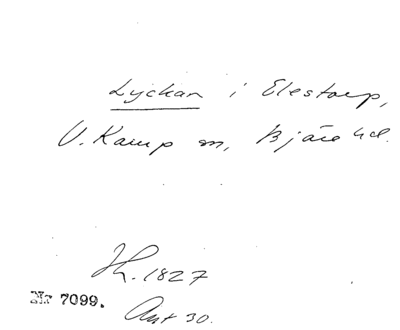 Lyckan i Elestorp,
V. Karup sn, Bjäre hd.
Th. 1827
Nr 7099.
Ant 30.